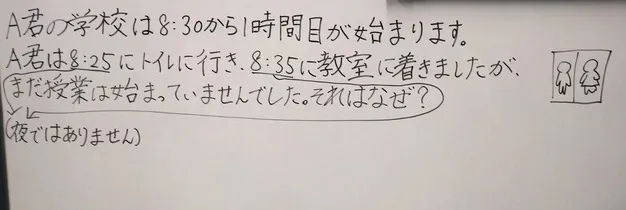 A君の学校は8:30から1時間目が始まります。
A君は8:25にトイレに行き、8:35に教室に着きましたが、
まだ授業は始まっていませんでした。それはなぜ？
(夜ではありません)